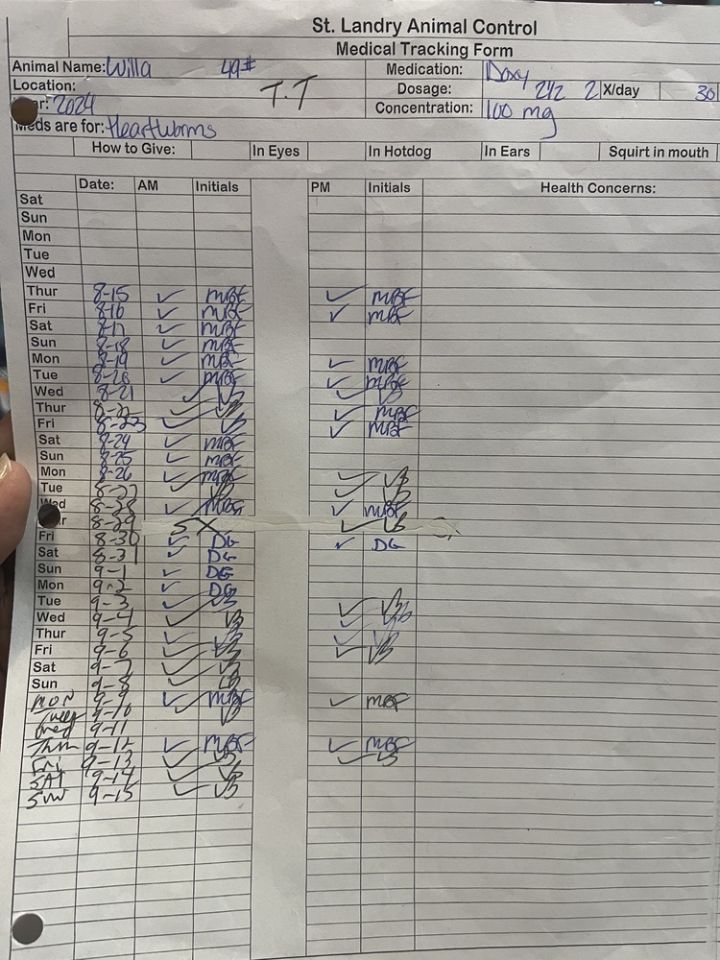 St. Landry Animal Control
Medical Tracking Form
Animal Name: Willa 49# Medication: Doxy
Location: T.T Dosage: 2 1/2 2 X/day 30
Year: 2024 Concentration: 100 mg
Meds are for: Heartworms
How to Give: In Eyes In Hotdog In Ears Squirt in mouth
Date: AM Initials PM Initials Health Concerns:
Sat
Sun
Mon
Tue
Wed
Thur 8-15 ✓ MBF ✓ MBF
Fri 8-16 ✓ MBF ✓ MBF
Sat 8-17 ✓ MBF
Sun 8-18 ✓ MBF
Mon 8-19 ✓ MBF ✓ MBF
Tue 8-20 ✓ MBF ✓ MBF
Wed 8-21 ✓ VB ✓ VB
Thur 8-22 ✓ VB ✓ MBF
Fri 8-23 ✓ VB ✓ MBF
Sat 8-24 ✓ MBF
Sun 8-25 ✓ MBF
Mon 8-26 ✓ MBF ✓ VB
Tue 8-27 ✓ VB ✓ VB
Wed 8-28 ✓ MBF ✓ MBF
8-29 ✓ VB
Fri 8-30 ✓ DG ✓ DG
Sat 8-31 ✓ DG
Sun 9-1 ✓ DG
Mon 9-2 ✓ DG
Tue 9-3 ✓ VB ✓ VB
Wed 9-4 ✓ VB ✓
Thur 9-5 ✓ VB ✓ VB
Fri 9-6 ✓ VB ✓ VB
Sat 9-7 ✓ VB
Sun 9-8 ✓ VB
MON 9-9 ✓ MBF ✓ MBF
Tues 9-10 ✓ VB
Wed 9-11
Thur 9-12 ✓ MBF ✓ MBF
Fri 9-13 ✓ VB ✓ VB
SAT 9-14 ✓ VB
SUN 9-15 ✓ VB